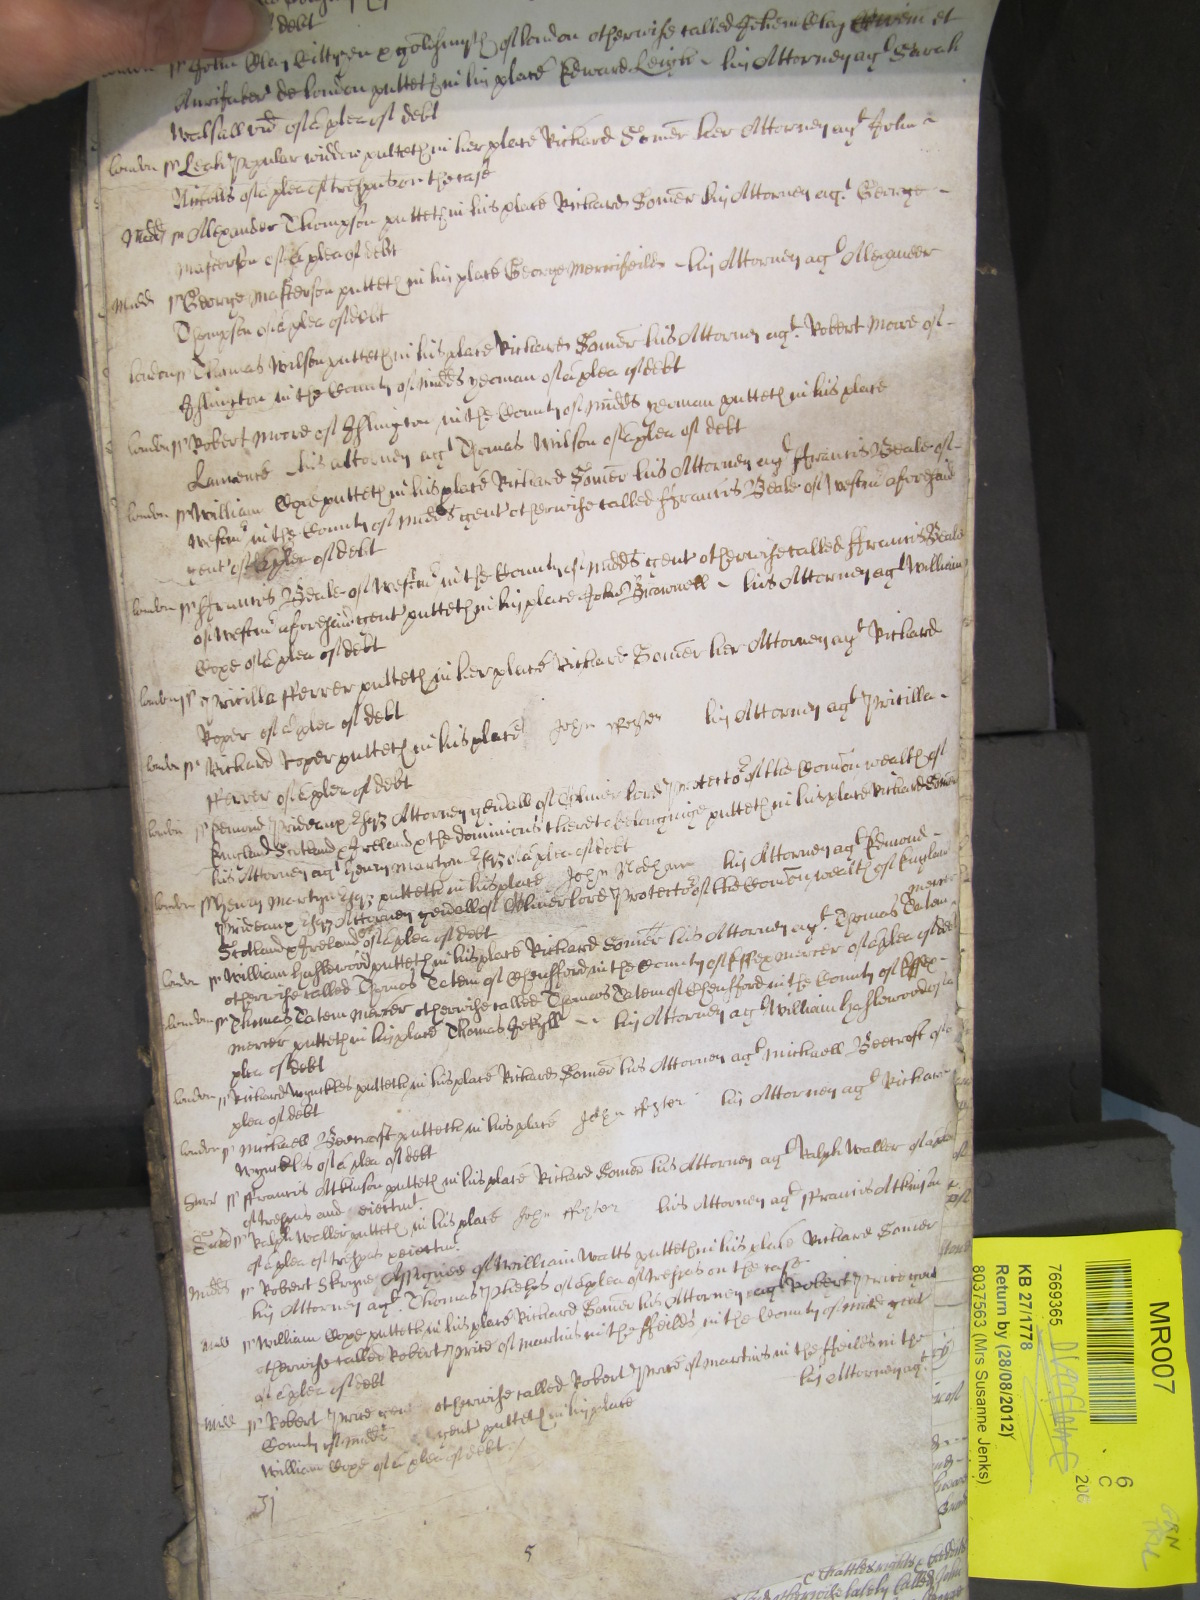 debt
London ss John Clay Cittizen & goldsmyth of London otherwise called Johem Clay Civem et
Aurifabr de London putteth in his place Edward Leigh his Attorney agt Sarah
Welsall vid of a plea of debt
London ss Leah Popular widdow putteth in her place Richard Somer her Attorney agt John
Nicolls of a plea of trespas on the case
Midds ss Alexander Thompson putteth in his place Richard Somer his Attorney agt George
Masterson of a plea of debt
Midds ss George Masterson putteth in his place George Merrifeild his Attorney agt Alexander
Thompson of a plea of debt
London ss Thomas Wilson putteth in his place Richard Somer his Attorney agt Robert Moore of
Islington in the County of Midds yeoman of a plea of debt
London ss Robert Moore of Islington in the County of Midds yeoman putteth in his place
Laurence his attorney agt Thomas Wilson of a plea of debt
London ss William Cope putteth in his place Richard Somer his Attorney agt Ffrancis Beale of
Westmr in the County of Midds gent otherwise called Ffrancis Beale of Westmr aforesaid
gent of a plea of debt
London ss Ffrancis Beale of Westmr in the County of Midds gent otherwise called Ffrancis Beale
of Westmr aforesaid gent putteth in his place John Brownell his Attorney agt William
Cope of a plea of debt
London ss Pricilla Fferrer putteth in her place Richard Somer her Attorney agt Richard
Roper of a plea of debt
London ss Richard Roper putteth in his place John Foster his Attorney agt Pricilla
Fferrer of a plea of debt
London ss Edmond Prideaux Esqr Attorney genall of Oliver Lord Protector of the Comon wealth of
England Scotland & Ireland & the dominions thereto belonginge putteth in his place Richard Somer
his Attorney agt Henry Martyn Esqr of a plea of debt
London ss Henry Martyn Esqr putteth in his place John his Attorney agt Edmond
Prideaux Esqr Attorney genall of Oliver Lord Protector of the Comon wealth of England
Scotland & Ireland &c of a plea of debt
London ss William Haslewood putteth in his place Richard Somer his Attorney agt Thomas Tatem mercer
otherwise called Thomas Tatem of Chensford in the County of Essex mercer of a plea of debt
London ss Thomas Tatem mercer otherwise called Thomas Tatem of Chensford in the County of Essex
mercer putteth in his place Thomas Jekyll his Attorney agt William Haslewood of a
plea of debt
London ss Richard Wynckles putteth in his place Richard Somer his Attorney agt Michaell Beecroft of a
plea of debt
London ss Michaell Beecroft putteth in his place John Foster his Attorney agt Richard
Wynckles of a plea of debt
Surr ss Ffrancis Atkinson putteth in his place Richard Somer his Attorney agt Ralph Waller of a plea
of trespas and eiectmt
Surr ss Ralph Waller putteth in his place John Foster his Attorney agt Ffrancis Atkinson
of a plea of trespas & eiectmt
Midds ss Robert Skryne Assignee of William Watts putteth in his place Richard Somer
his Attorney agt Thomas Phelps of a plea of trespas on the case
Midd ss William Cope putteth in his place Richard Somer his Attorney agt Robert Price gent
otherwise called Robert Price of Martins in the Ffeilds in the County of Midd gent
of a plea of debt
Midd ss Robert Price gent otherwise called Robert Price of Martins in the Ffeilds in the
County of Midd gent putteth in his place his Attorney agt
William Cope of a plea of debt
5
MR007
6
C
206
7669365
KB 27/1778
Return by (28/08/2012)
8037563 (Mrs Susanne Jenks)